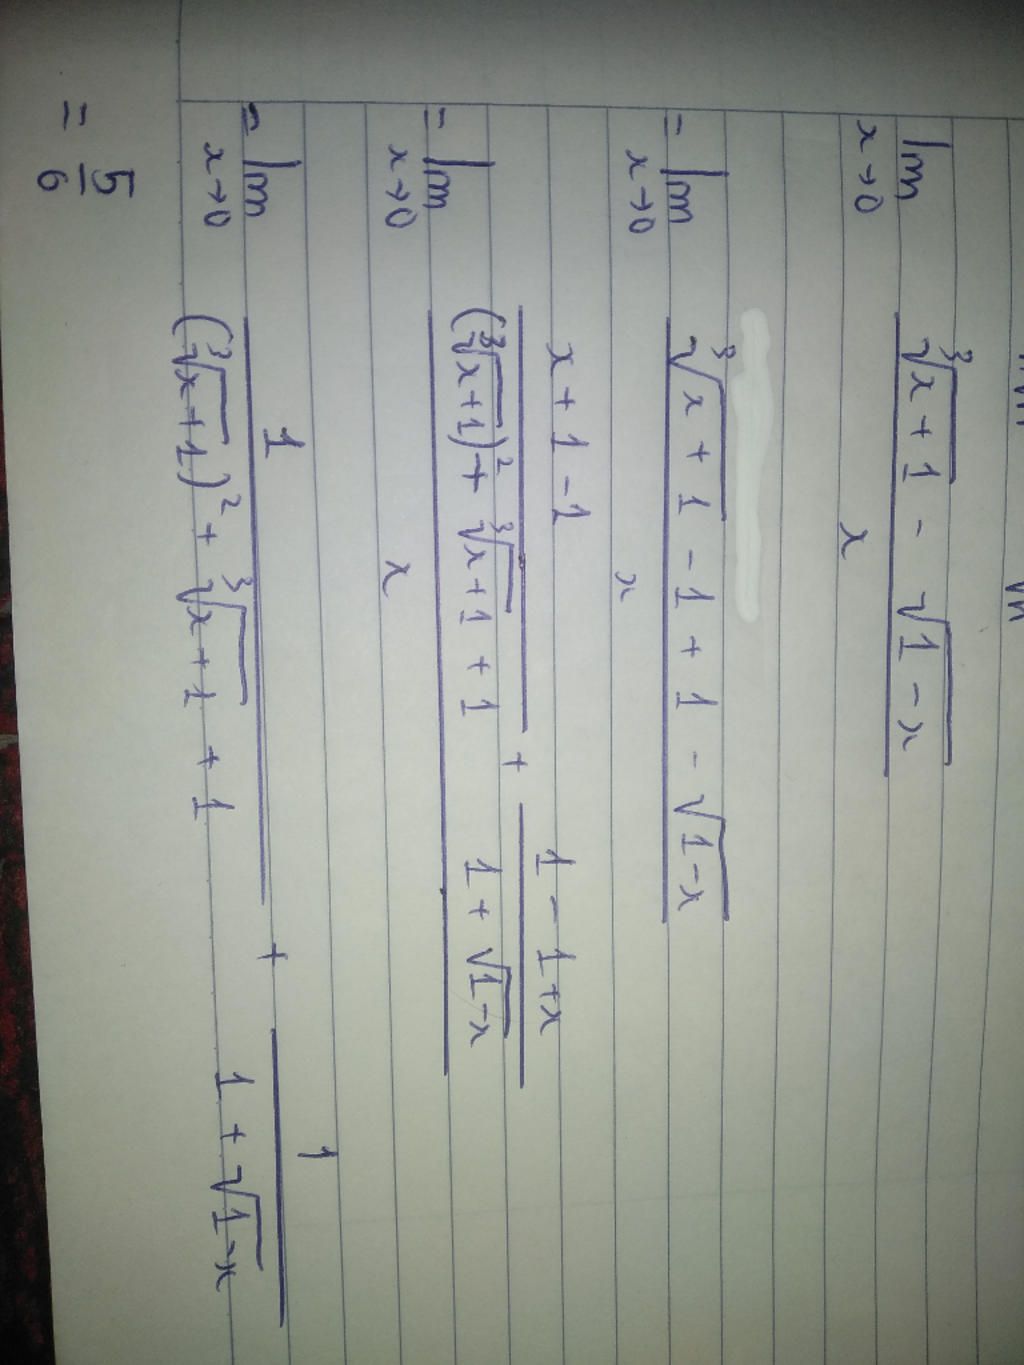 lim x→0 (∛(x+1) - √(1-x)) / x
= lim x→0 (∛(x+1) - 1 + 1 - √(1-x)) / x
= lim x→0 ((x+1-1) / ((∛(x+1))² + ∛(x+1) + 1) + (1-1+x) / (1+√(1-x))) / x
= lim x→0 1 / ((∛(x+1))² + ∛(x+1) + 1) + 1 / (1+√(1-x))
= 5/6